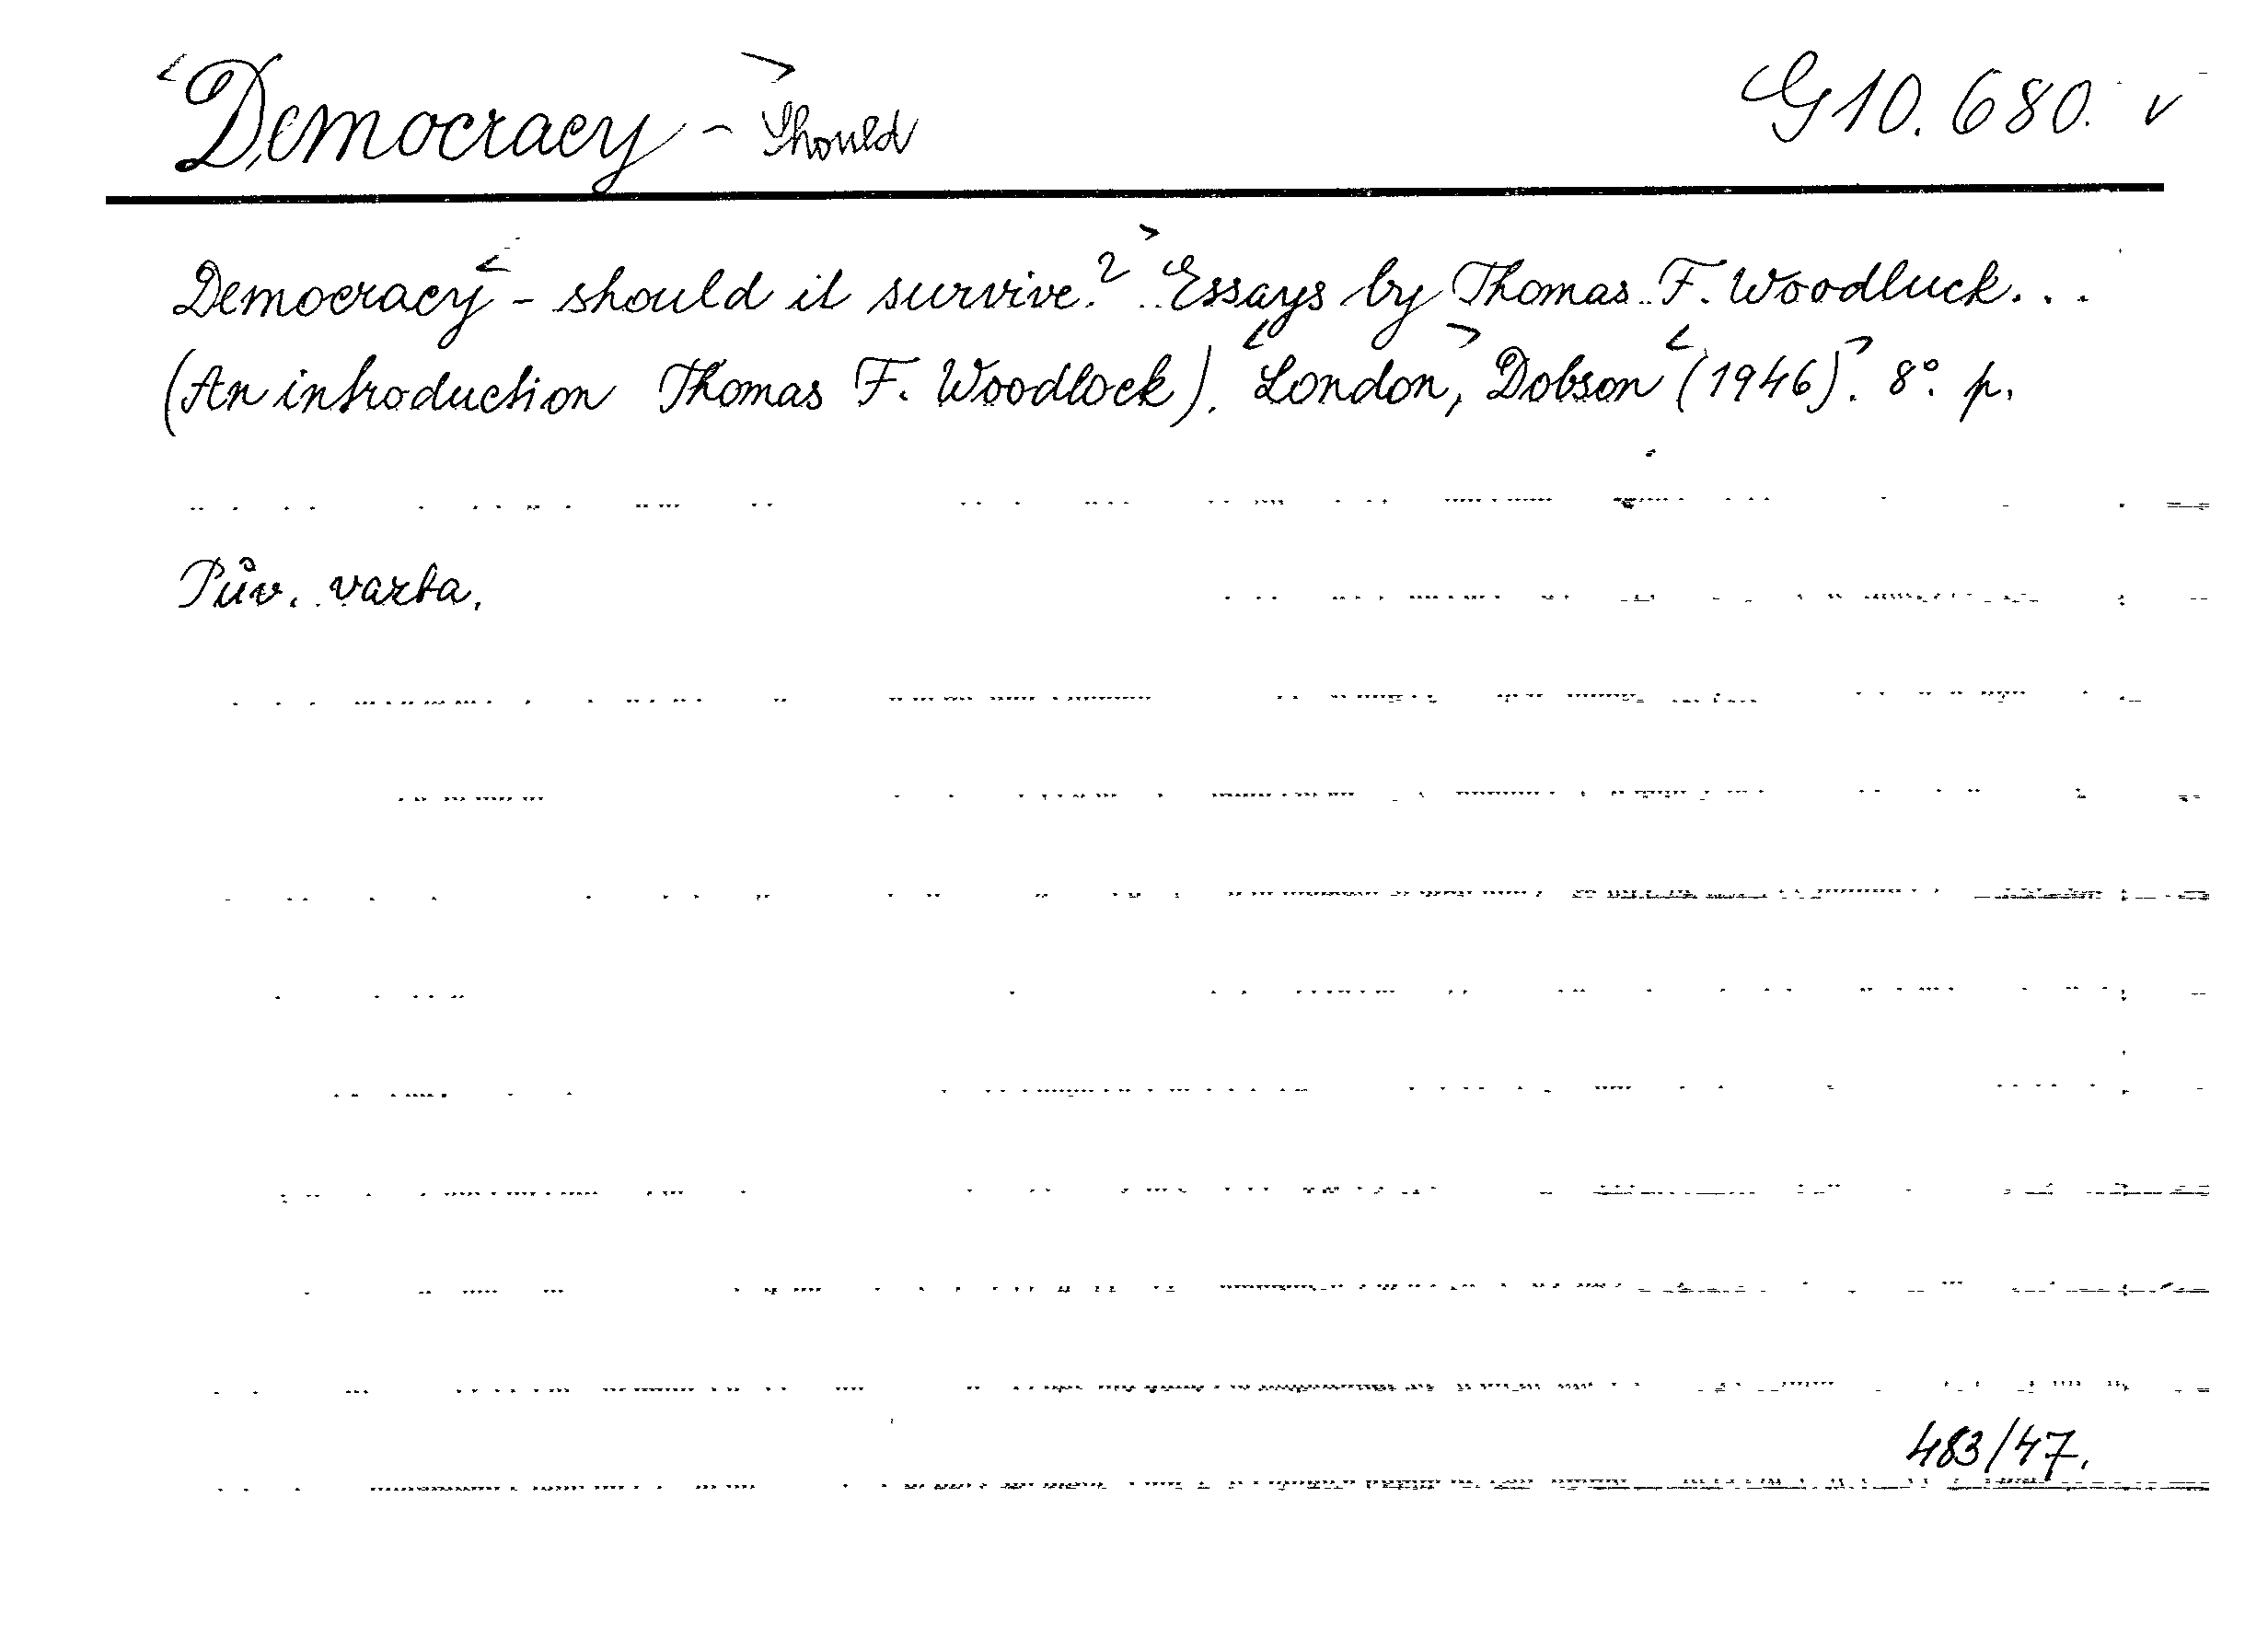 <Democracy> - Should G10.680. v
Democracy< - should it survive?> Essays by Thomas F. Woodluck...
(An introduction Thomas F. Woodlock). <London,> Dobson <(1946)>. 8°. p.
Pův. vazba.
483/47.